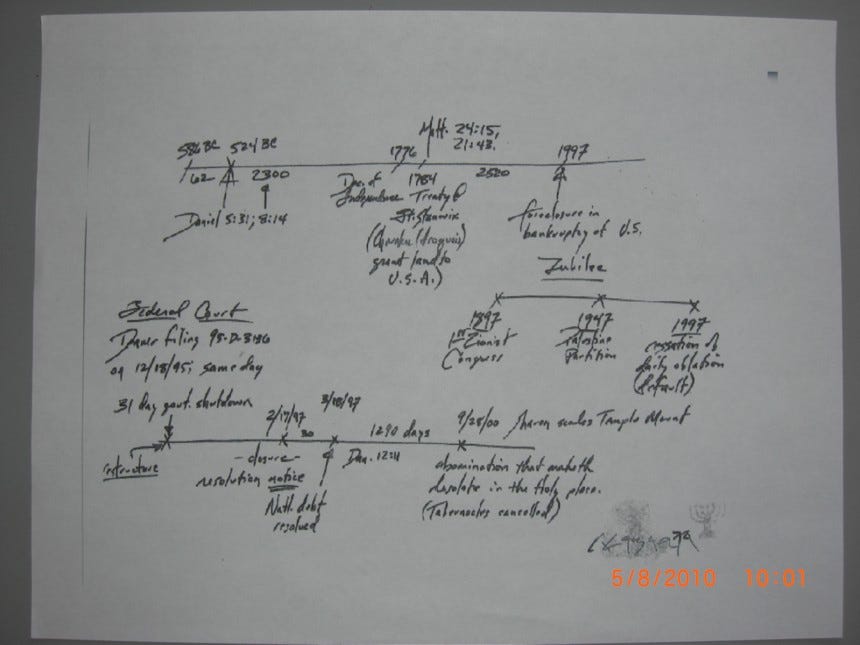 586 BC 524 BC
1776
Matt. 24:15,
21:43.
1997
62 2300
1784
2520
Daniel 5:31; 8:14
Dec. of
Independence Treaty of
Ft. Stanwix
(Iroquois)
grant land to
U.S.A.)
foreclosure in
bankruptcy of U.S.
Jubilee
1897 1947 1997
1st Zionist
Congress
Palestine
Partition
cessation of
daily oblation
(default)
Federal Court
filing 95-D-3186
on 12/18/95; same day
31 day govt. shutdown
restructure
2/17/97
30
3/18/97
1290 days
9/28/00 Sharon scales Temple Mount
- closure -
resolution notice
Dan. 12:11
Natl. debt
resolved
abomination that maketh
desolate in the Holy place.
(Tabernacles cancelled)
5/8/2010 10:01